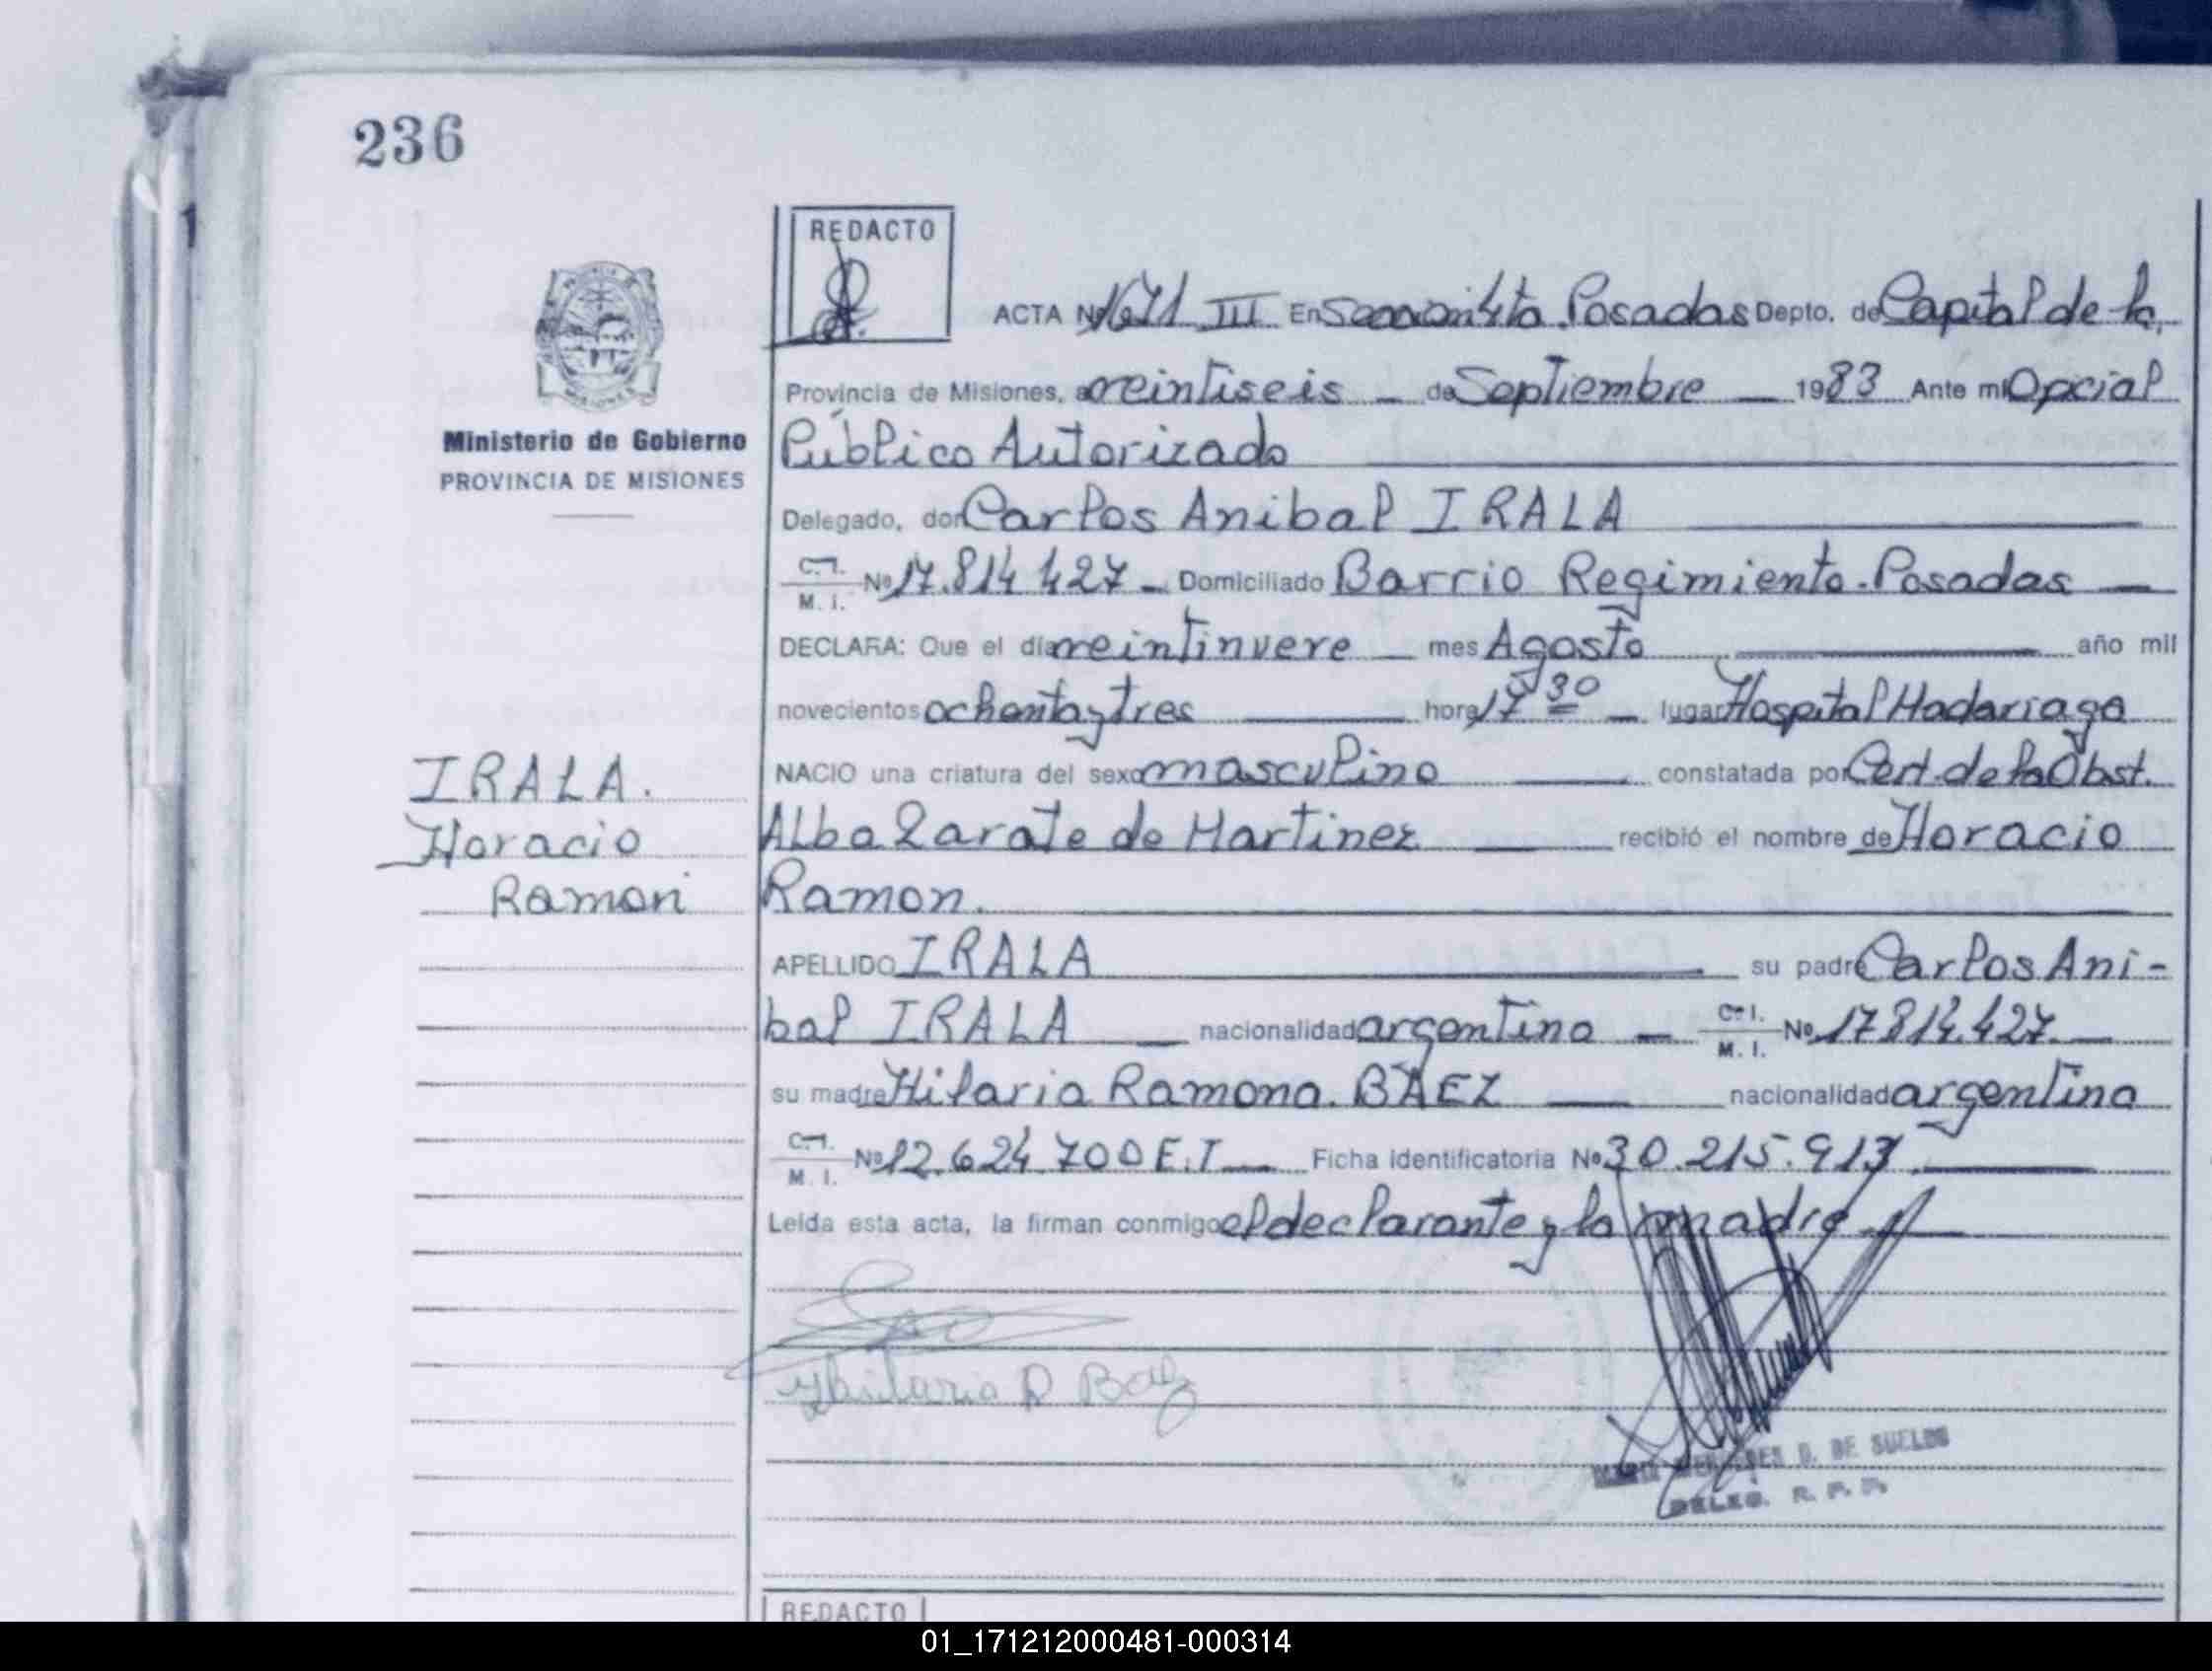 236
REDACTO
ACTA Nº 1671 III En Seccion 4ta. Posadas Depto. de Capital de la
Provincia de Misiones, a veintiseis de Septiembre 1983 Ante mi Oficial
Ministerio de Gobierno
PROVINCIA DE MISIONES
Público Autorizado
Delegado, don Carlos Anibal IRALA
C.I. M. I. Nº 17.814 427 Domiciliado Barrio Regimiento. Posadas
DECLARA: Que el día veintinueve mes Agosto año mil
novecientos ochenta y tres hora 17 30 lugar Hospital Madariaga
IRALA.
Horacio
Ramon
NACIO una criatura del sexo masculino constatada por Cert. de la Obst.
Alba Zarate de Martinez recibió el nombre de Horacio
Ramon.
APELLIDO IRALA su padre Carlos Ani-
bal IRALA nacionalidad argentina C.I. M. I. Nº 17 814.427.
su madre Hilaria Ramona. BAEZ nacionalidad argentina
C.I. M. I. Nº 12.624 700 E.T Ficha identificatoria Nº 30.215.913.
Leída esta acta, la firman conmigo el declarante y la madre
Hilaria R Baez
MARIA MERCEDES G. DE SUELDO
DELEG. R. P. P.
REDACTO
01_171212000481-000314